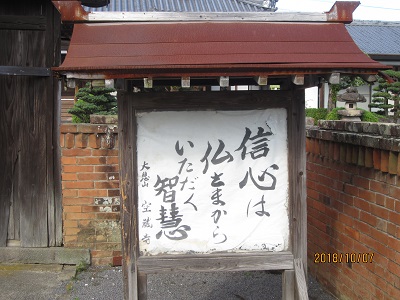 信心は
仏さまから
いただく
智慧
宝蔵寺
2018/10/07